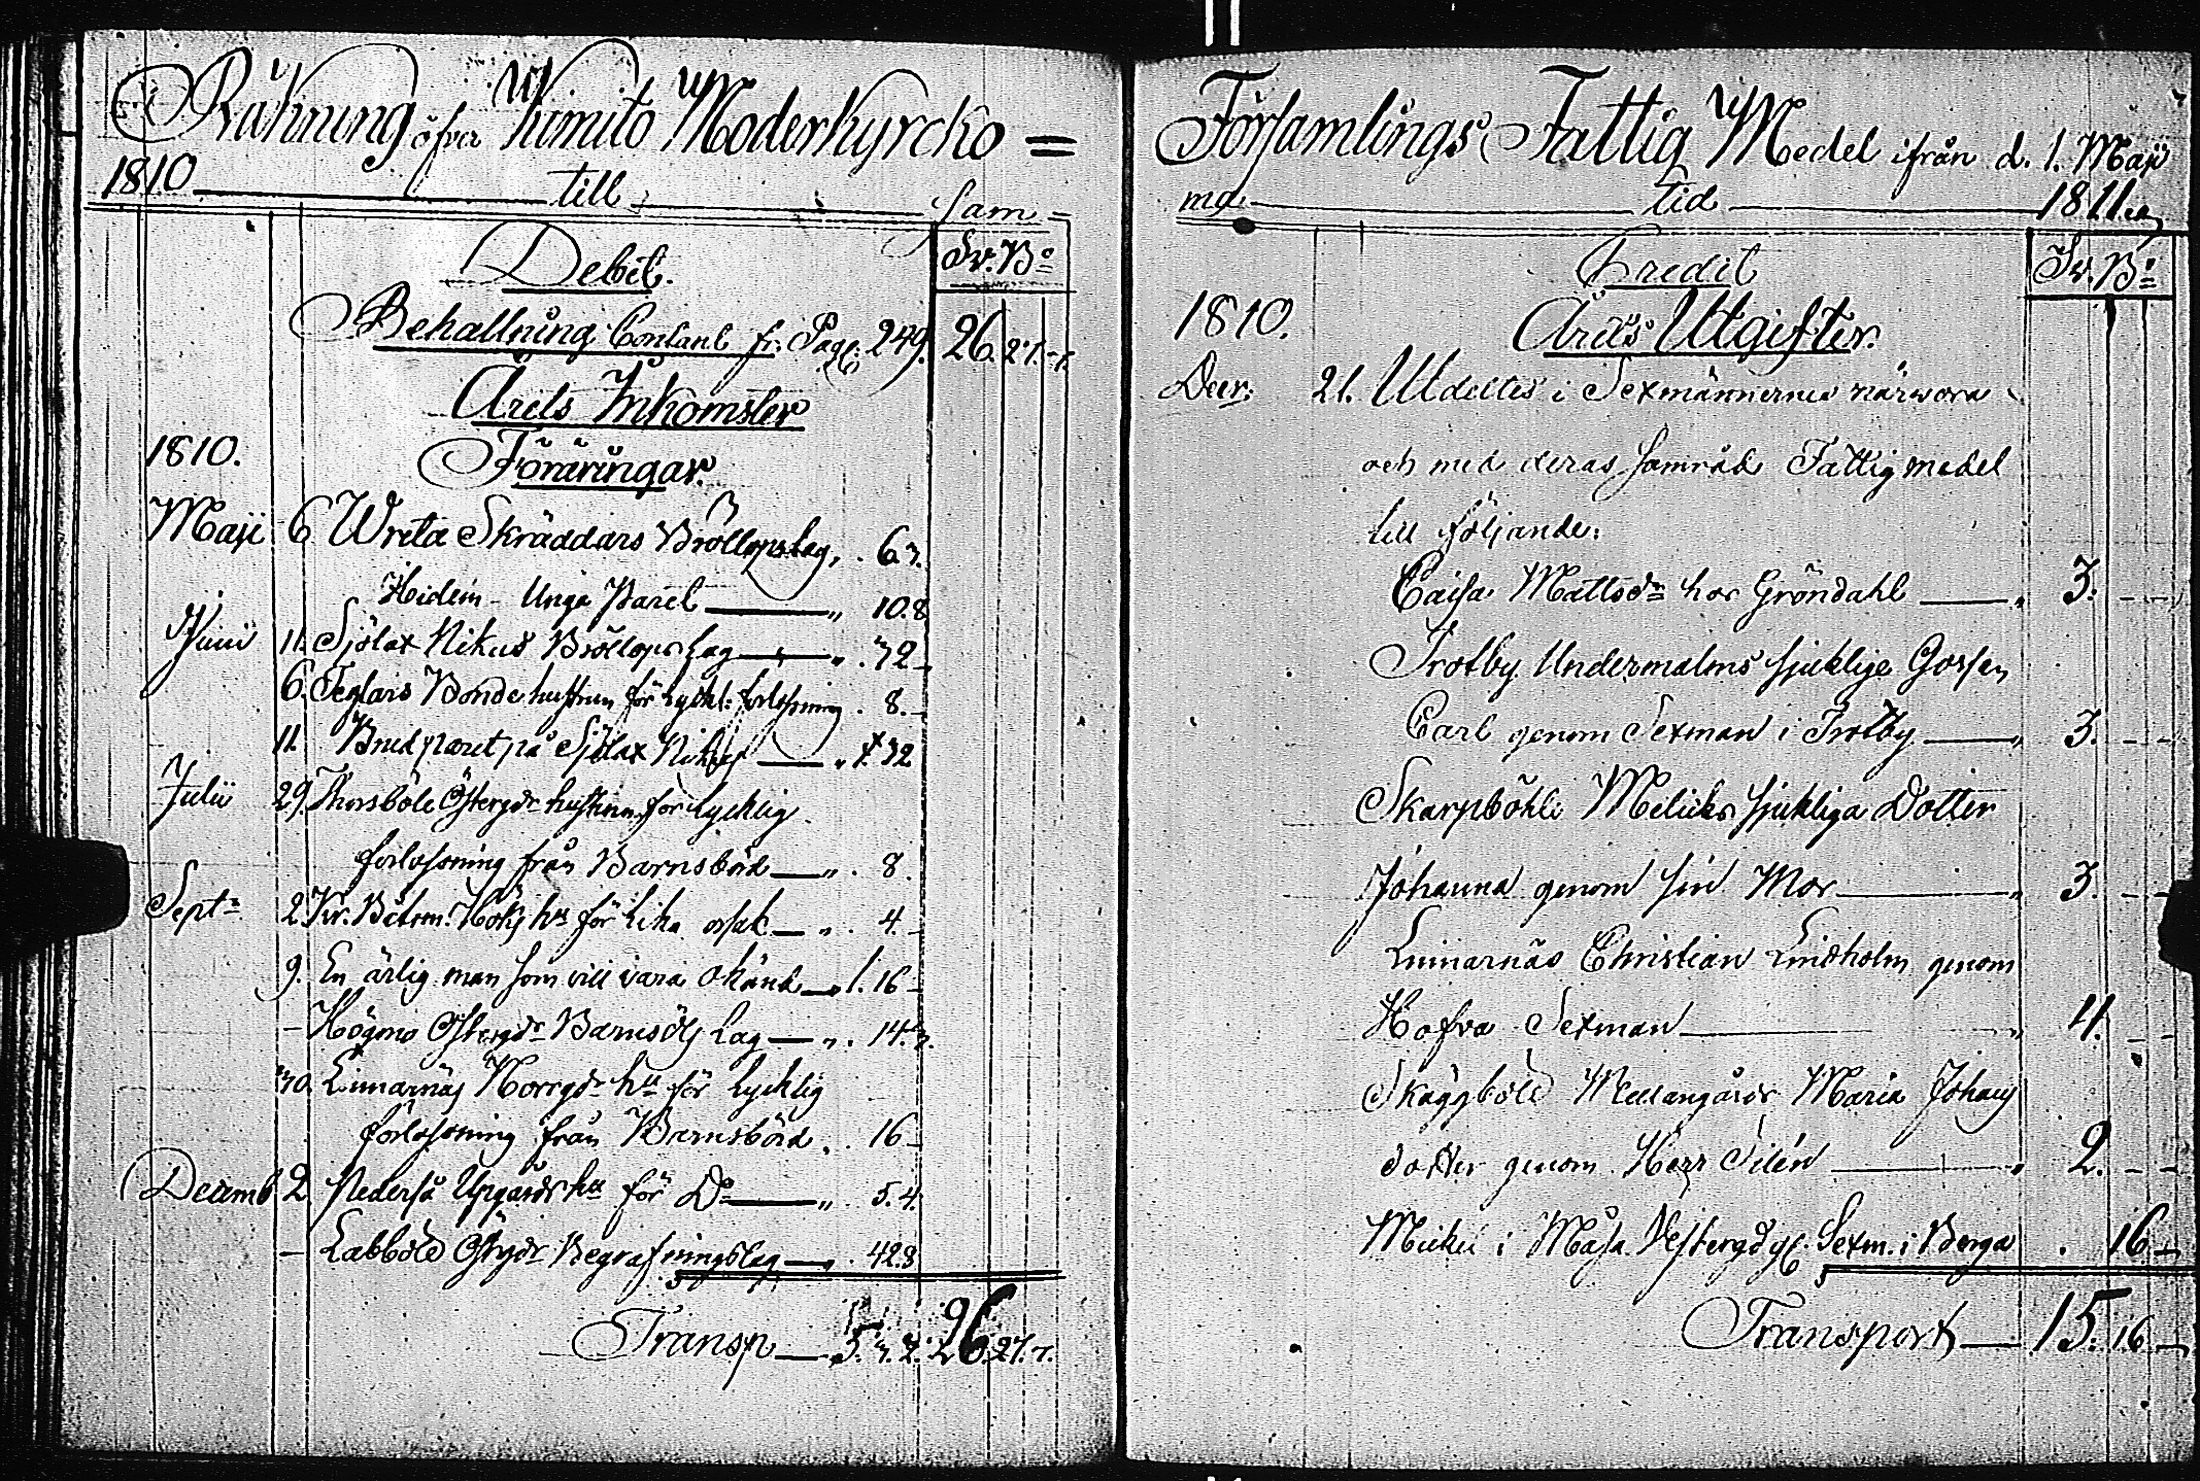 Räkning öfver Kimito Moderkyrcko =
1810 till sam=
Debet. Sv. Bo
Behallning Contant fr. Pag. 249. 26. 21. 7.
Årets Inkomster
1810. Föräringar.
Maji 6 Wreta Skräddars Bröllopslag, . 6.3.
Heidein Unga Paret " 10.8
Junii 11. Sjölax Nikus Bröllops Lag " . 32
6. Teglars Bonde hustrun för lyckl: förlossning . 8.
11. Brudparet på Sjölax Nikus " . 32
Julii 29. Thorsböle Östergdr hustrun för Lycklig
förlossning från Barnsbörd " . 8.
Septr 2. Kr. Båtsm. Höks hu för lika orsak " . 4.
9. En ärlig man som vill vara okänd " 1. 16
- Högmo Östergdr Barnsöls Lag " . 14.
30. Linnarnäs Norrgdr hu för Lycklig
förlossning från Barnsbörd . . 16
Decemb 2. Pederså Uppgårds hu för Do " . 5.4.
- Labböle Östgdr Begrafningslag " . 42.8
Transp " 5. 3. 7. 26. 21. 7.
Församlings Fattig Medel ifrån d. 1. Maji
ma tid 1811.
Credit Sv. Bo
1810. Årets Utgifter.
Decr. 21. Utdeltes i Sexmännernes närwara
och med deras samråd Fattigmedel
till följande:
Caisa Mattsdr hos Gröndahl " 3. - -
Trotby Undermalms sjuklige Gossen
Carl genom Sexman i Trotby " 3. - -
Skarpböhle Melicks sjukliga Dotter
Johanna genom sin Mor " 3. - -
Linnarnäs Christian Lindholm genom
Hofva Sexman " 4. - -
Skäggböle Mellangårds Maria Johans
dotter genom Herr Silén " 2. - -
Mickel i Måsa Westergd gm. Sexm. i Berga . 16 -
Transport 15. 16 -